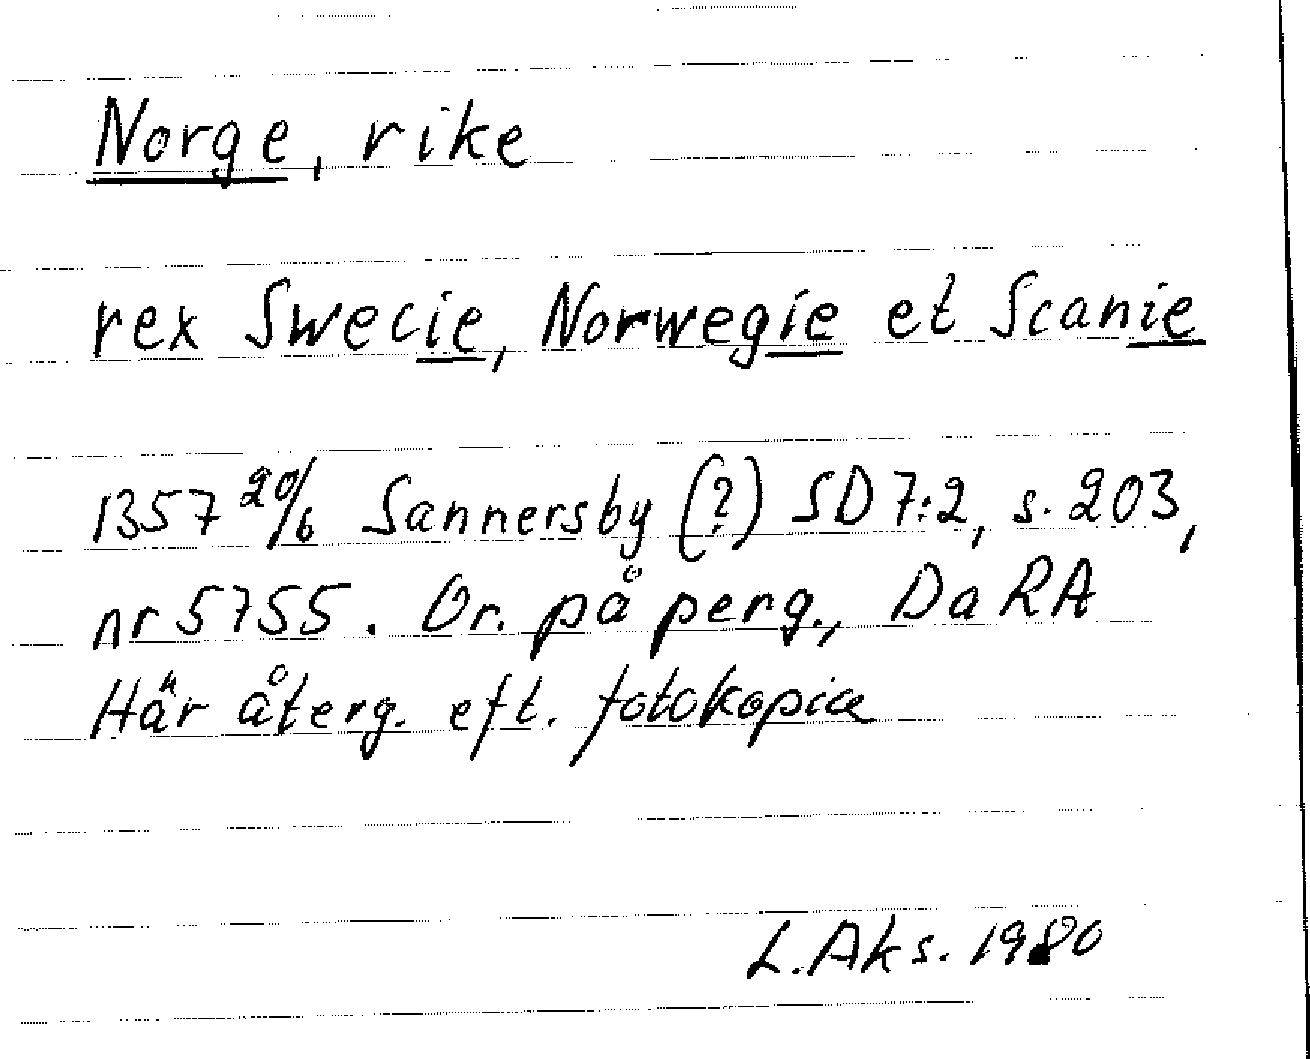 Norge, rike
rex Swecie, Norwegie et Scanie
1357 20/6 Sannersby (?) SD 7:2, s. 203,
nr 5755. Or. på perg., Da RA
Här återg. eft. fotokopia
L. Aks. 1980